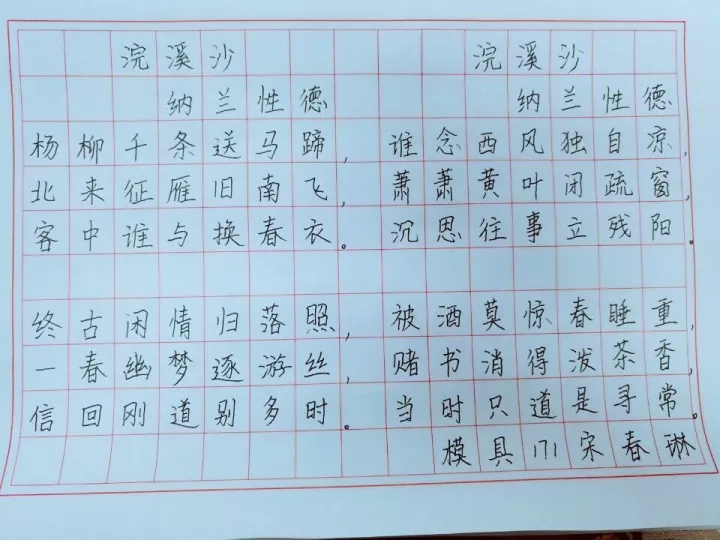 浣溪沙
纳兰性德
杨柳千条送马蹄，
北来征雁旧南飞，
客中谁与换春衣。
终古闲情归落照，
一春幽梦逐游丝，
信回刚道别多时。
浣溪沙
纳兰性德
谁念西风独自凉，
萧萧黄叶闭疏窗，
沉思往事立残阳。
被酒莫惊春睡重，
赌书消得泼茶香，
当时只道是寻常。
模具171宋春琳